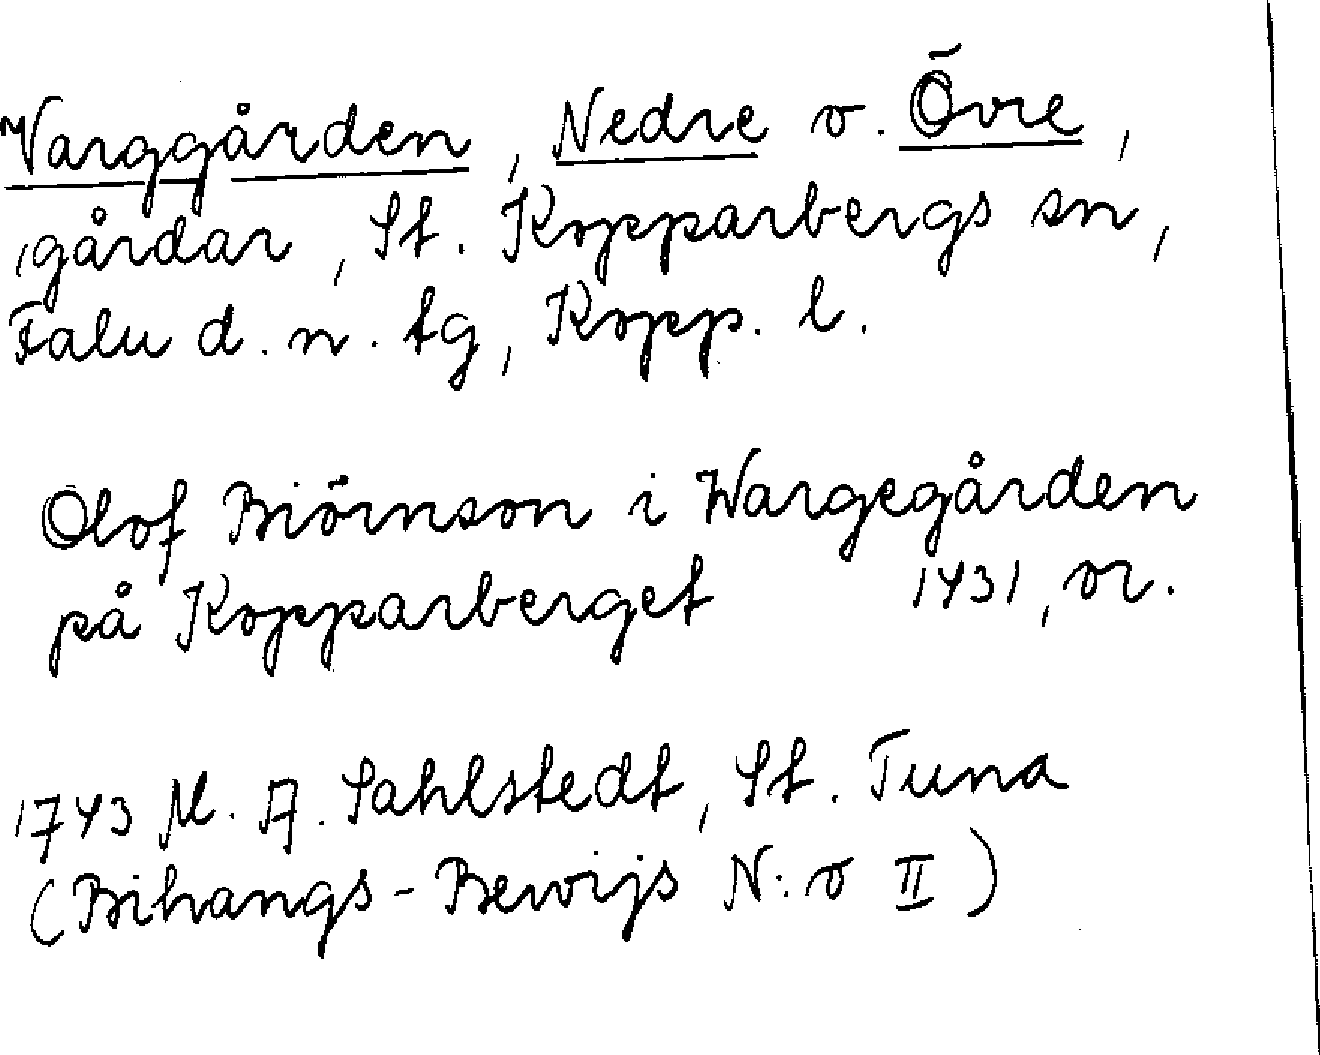 Varggården, Nedre o. Övre,
gårdar, St. Kopparbergs sn,
Falu d. n. tg, Kopp. l.
Olof Biörnson i Wargegården
på Kopparberget 1431, or.
1743 M. A. Sahlstedt, St. Tuna
(Bihangs-Bewijs N:o II)